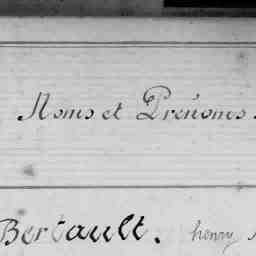 Noms et Prénoms.
Bertault. henry